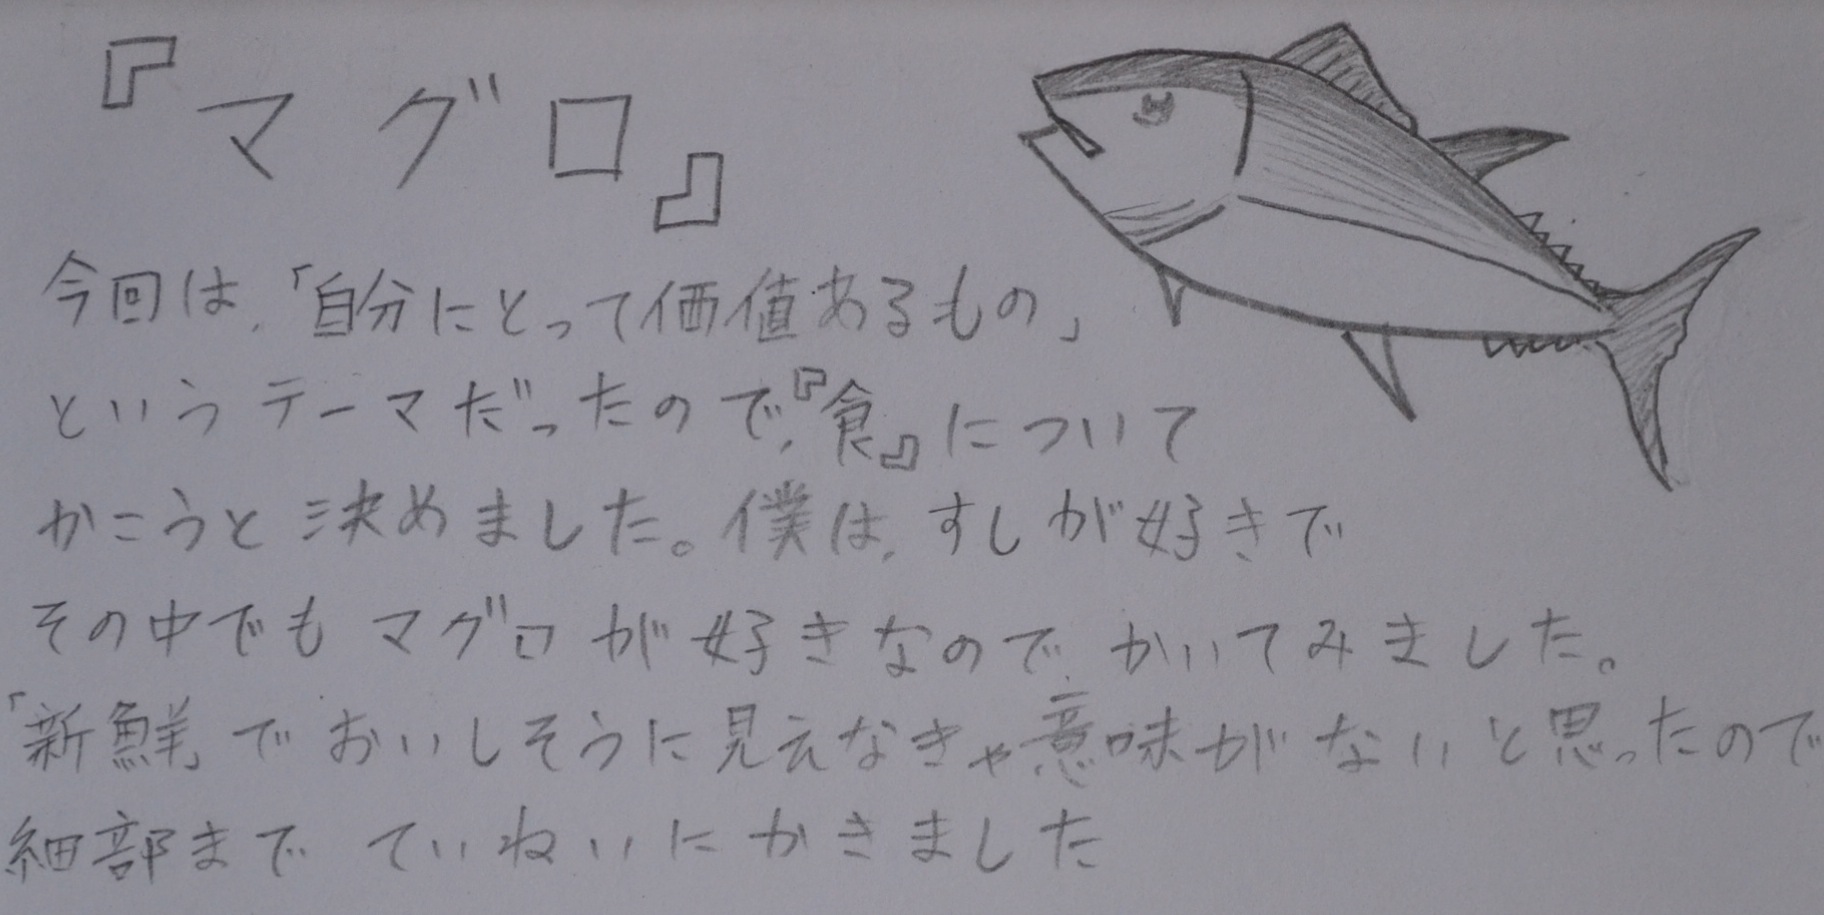 『マグロ』
今回は、「自分にとって価値あるもの」
というテーマだったので、『食』について
かこうと決めました。僕は、すしが好きで
その中でもマグロが好きなので、かいてみました。
「新鮮」でおいしそうに見えなきゃ意味がないと思ったので
細部までていねいにかきました